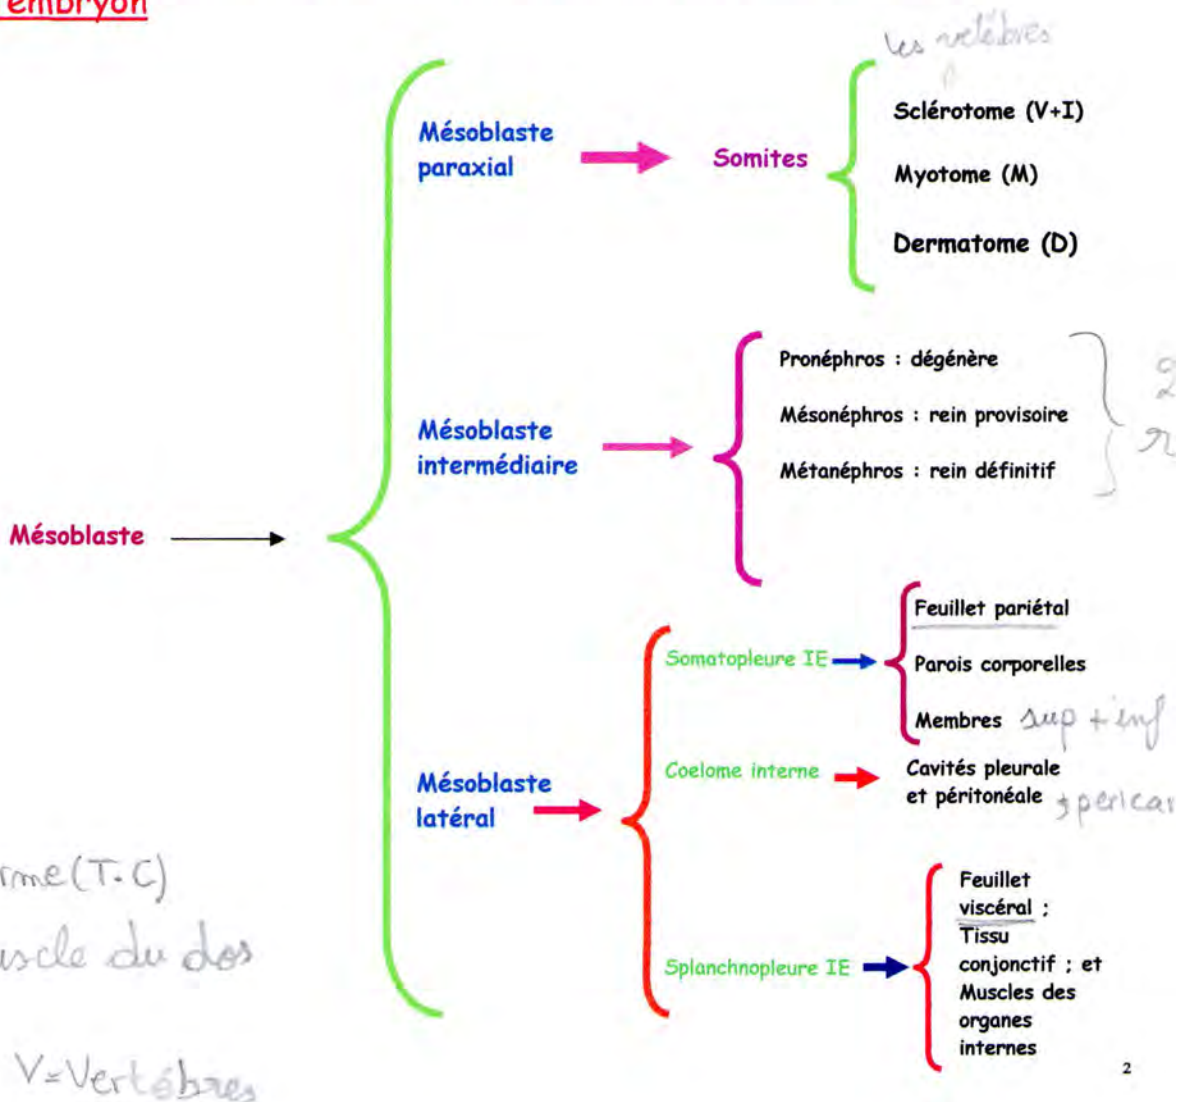 embryon
les vetébres
Mésoblaste
paraxial
Somites
Sclérotome (V+I)
Myotome (M)
Dermatome (D)
Mésoblaste
intermédiaire
Pronéphros : dégénère
Mésonéphros : rein provisoire
Métanéphros : rein définitif
2
r
Mésoblaste
Mésoblaste
latéral
Somatopleure IE
Feuillet pariétal
Parois corporelles
Membres sup + inf
Coelome interne
Cavités pleurale
et péritonéale , pericar
Splanchnopleure IE
Feuillet
viscéral ;
Tissu
conjonctif ; et
Muscles des
organes
internes
rme (T.C)
uscle du dos
V=Vertébres
2